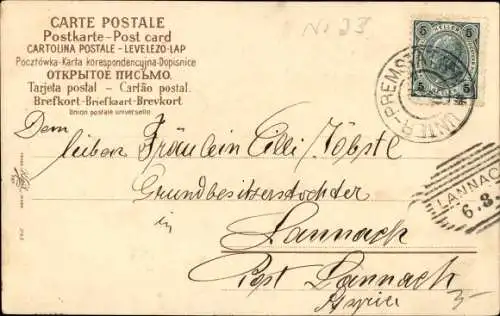 CARTE POSTALE
Postkarte - Post card
CARTOLINA POSTALE - LEVELEZO-LAP
Pocztówka-Karta korespondencyjna-Dopisnice
ОТКРЫТОЕ ПИСЬМО.
Tarjeta postal - Cartão postal.
Brefkort-Briefkaart-Brevkort
Union postale universelle.
No 23
5 HELLER 5
5 5
UNTER-PREMST
Dem
lieben Fräulein Cilli Töbstl
Grundbesitzerstochter
in
Lannach
Post Lannach
LANNACH
6.8.